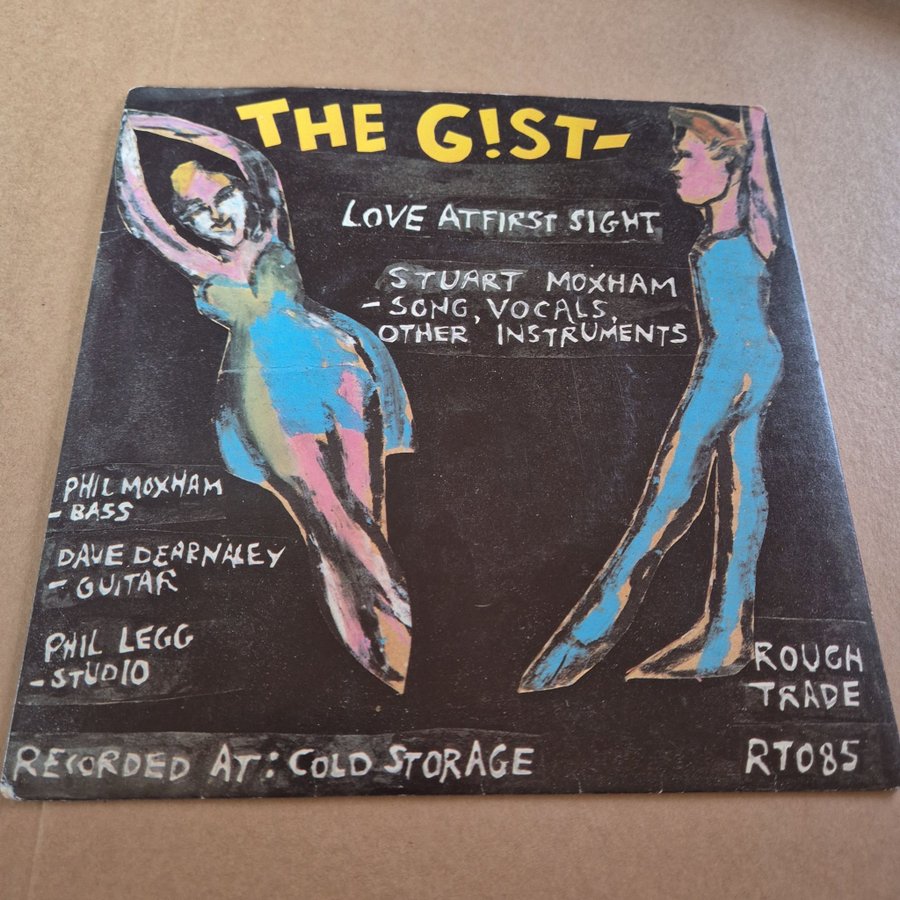 THE G!ST-
LOVE AT FIRST SIGHT
STUART MOXHAM
- SONG, VOCALS,
OTHER INSTRUMENTS
PHIL MOXHAM
- BASS
DAVE DEARNALEY
- GUITAR
PHIL LEGG
- STUDIO
ROUGH
TRADE
RECORDED AT: COLD STORAGE
RT085